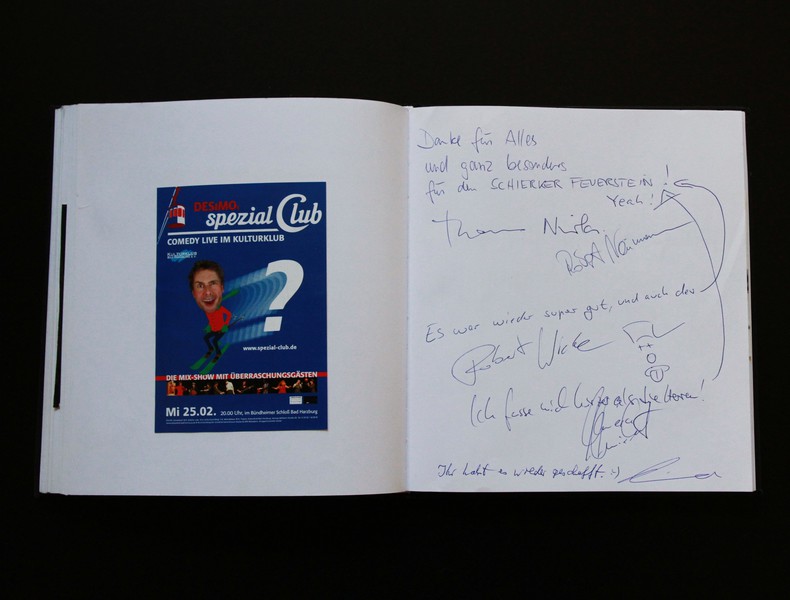 DESiMOs
spezial Club
COMEDY LIVE IM KULTURKLUB
www.spezial-club.de
DIE MIX-SHOW MIT ÜBERRASCHUNGSGÄSTEN
Mi 25.02. 20.00 Uhr, im Bündheimer Schloß Bad Harzburg
Danke für Alles
und ganz besonders
für den SCHIERKER FEUERSTEIN!
Yeah!
Es war wieder super gut, und auch der
Robert Wicke
Ich fasse mich
Ihr habt es wieder geschafft. :-)